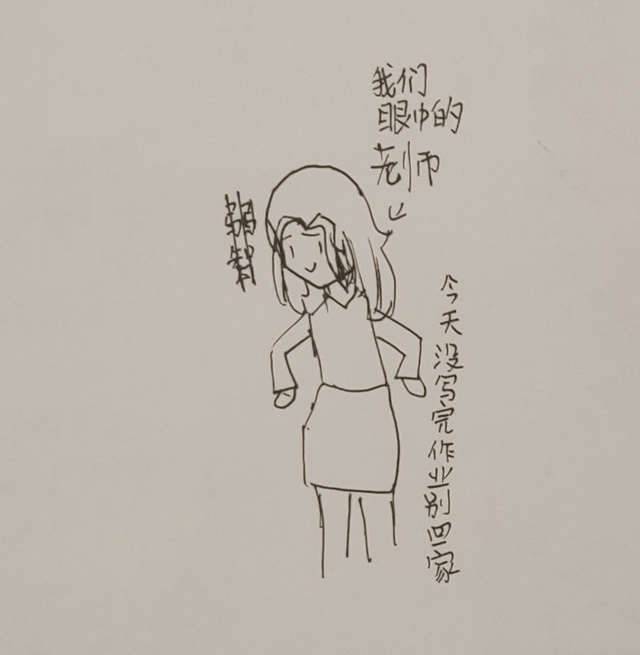 我们
眼中的
老师
今天没写完作业别回家